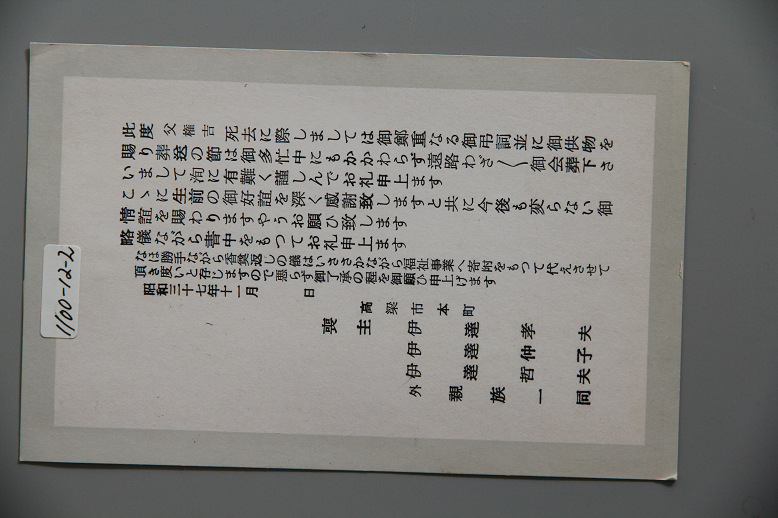 此度父権吉死去に際しましては御鄭重なる御弔詞並に御供物を
賜り葬送の節は御多忙中にもかかわらず遠路わざ〱御会葬下さ
いまして洵に有難く謹しんでお礼申上ます
こゝに生前の御好誼を深く感謝致しますと共に今後も変らない御
情誼を賜わりますやうお願ひ致します
略儀ながら書中をもつてお礼申上ます
なほ勝手ながら香奠返しの儀はいささかながら福祉事業へ寄附をもつて代えさせて
頂き度いと存じますので悪らず御了承の程を御願ひ申上げます
昭和三十七年十一月　日
高梁市本町
喪主　伊達孝夫
伊達仲子
伊達哲夫
外親族一同
1100-12-2